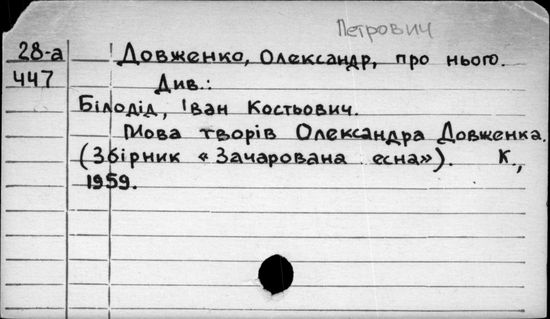 Петрович
28-а Довженко, Олександр, про нього.
447 Див.:
Білодід, Іван Костьович.
Мова творів Олександра Довженка.
(Збірник «Зачарована есна»). К,
1959.